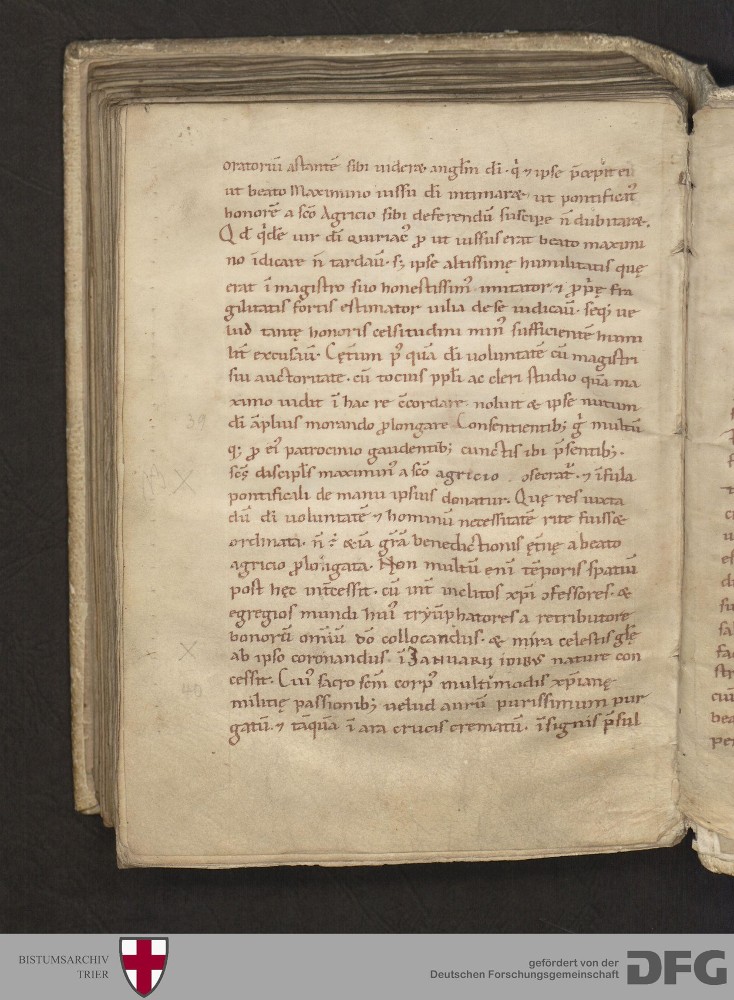 oratoriū astantē sibi uideræ angl̄m dī · q̓ ⁊ ipse p̄cep̄it ei
ut beato Maximino iussu dī intimaræ ut pontificat᷒
honorē a sc̄o Agricio sibi deferendū suscipe n̄ dubitaræ.
Q d̄ q̓de uir dī quiriac᷒ ꝓ ut iussus erat beato maximi
no īdicare n̄ tardau̅ · s; ipse altissimę humilitatis quę
erat ī magistro suo honestissim᷒ imitator · ⁊ ꝓp̄ę fra
gilitatis fortis estimator uilia de se iudicau̅ · seq; ue
lud tantę honoris celsitudini min᷒ sufficientē humi
lit̄ excusau̅ · Cęt̄um p᷒ quā dī uoluntatē cū magistri
sui auctoritate · cū tocius pp̄li ac cleri studio quā ma
ximo uidit ī hac re c̄cordare · noluit & ipse nutum
dī āplius morando ꝓlongare Consentientib; g̓ multū
q; ꝓ ei᷒ patrocinio gaudentib; cunctis ibi p̄sentib; ·
sc̄s discipl̄s maximin᷒ a sc̄o agricio ↄsecrat᷒ · ⁊ īfula
pontificali de manu ipsius donatur. Quę res iuxta
dū dī uoluntatē ⁊ hominū necessitatē rite fuisse
ordinata · n̄ &iā gr̄a benedictionis ęt̄nę a beato
agricio ꝓlongata · Non multū eni̅ tēporis spatiū
post hęc int̄cessit · cū int̄ inclitos xp̄i ↄfessores · &
egregios mundi hui᷒ tryūphatores a retributore
bonorū om̄iū dō collocandus · & mira celestis gl̄ę
ab ipso coronandus · ī IANUARII IDIBUS naturę con
cessit · Cui᷒ sacro sc̄m corp᷒ multimodis xp̄ianę
militię passionib; uelud aurū purissimum pur
gatū · ⁊ tāquā ī ara crucis crematū · īsignis p̄sul
39
40
BISTUMSARCHIV
TRIER
gefördert von der
Deutschen Forschungsgemeinschaft
DFG